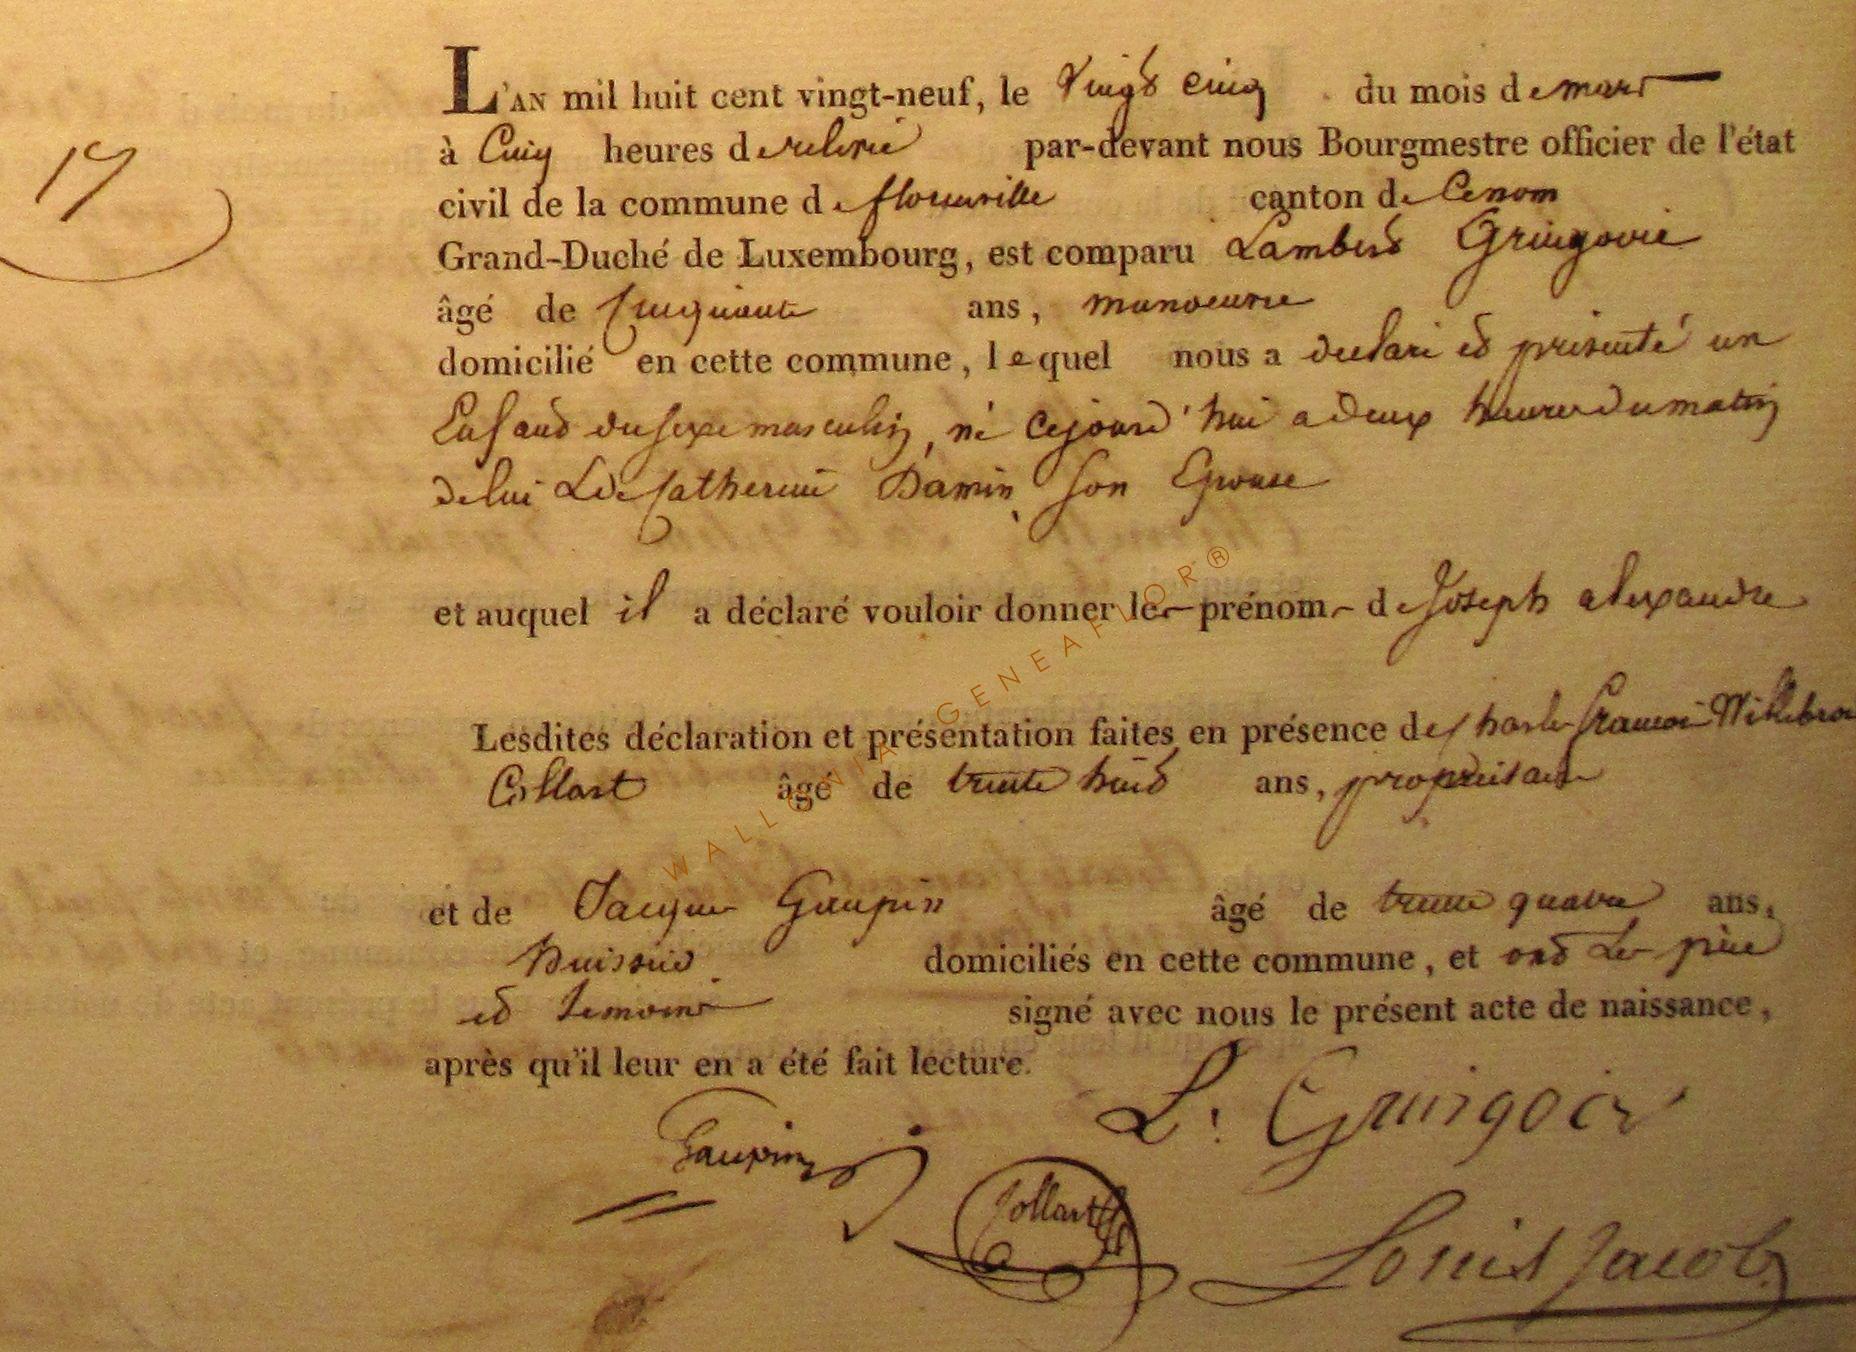 17
L'AN mil huit cent vingt-neuf, le Vingt cinq du mois de mars
à Cinq heures de relevée par-devant nous Bourgmestre officier de l'état
civil de la commune de florenville canton de
Grand-Duché de Luxembourg, est comparu Lambert Gringoire
âgé de Cinquante ans, manoeuvre
domicilié en cette commune, lequel nous a declaré et présenté un
Enfant du sexe masculin, né cejourd'hui a Deux heures du matin
de lui & de Catherine Damin son Epouse
et auquel il a déclaré vouloir donner les prénoms de Joseph alexandre
Lesdites déclaration et présentation faites en présence de Charles francois Willebror
Collart âgé de trente huit ans, propriétaire
et de Jacques Gaupin âgé de trente quatre ans,
huissier domiciliés en cette commune, et ont les père
et temoins signé avec nous le présent acte de naissance,
après qu'il leur en a été fait lecture.
L. Gringoire
Gaupin
Collart
Louis Jacob
WALLONIA GENEAFLOR®